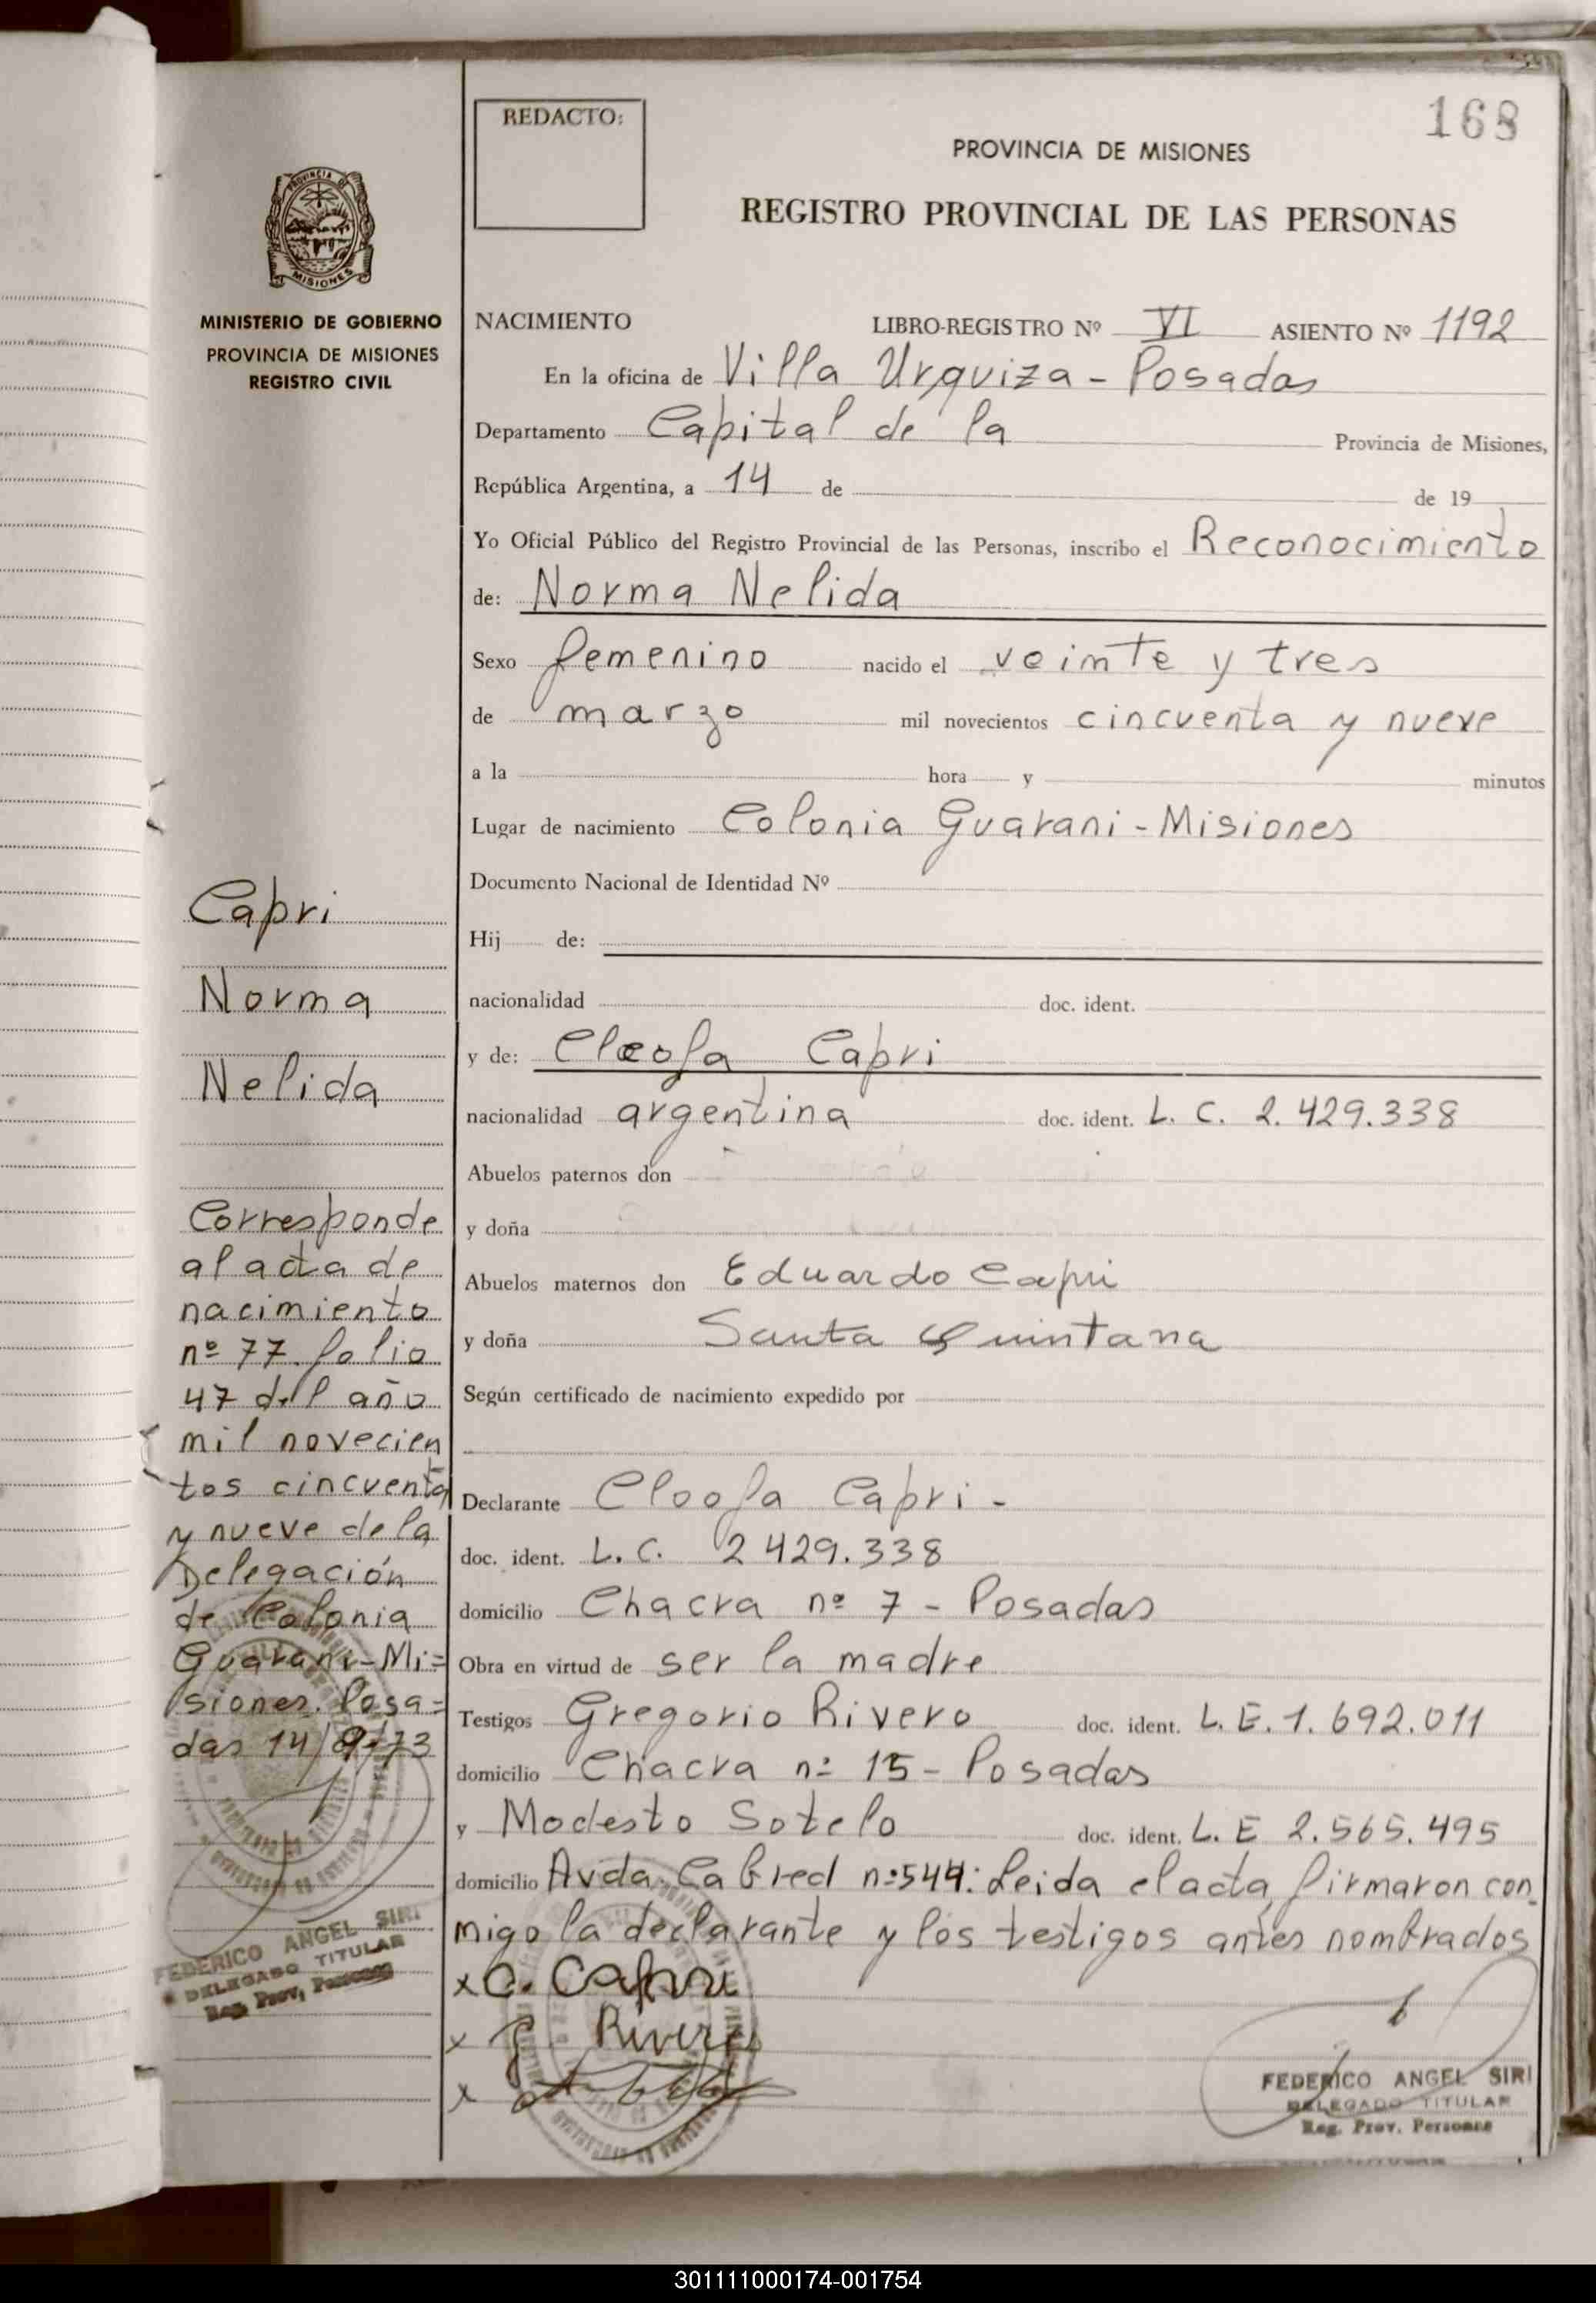 168
REDACTO:
PROVINCIA DE MISIONES
REGISTRO PROVINCIAL DE LAS PERSONAS
PROVINCIA DE
MISIONES
MINISTERIO DE GOBIERNO
PROVINCIA DE MISIONES
REGISTRO CIVIL
NACIMIENTO LIBRO-REGISTRO Nº VI ASIENTO Nº 1192
En la oficina de Villa Urquiza - Posadas
Departamento Capital de la Provincia de Misiones,
República Argentina, a 14 de de 19
Yo Oficial Público del Registro Provincial de las Personas, inscribo el Reconocimiento
de: Norma Nelida
Sexo femenino nacido el veinte y tres
de marzo mil novecientos cincuenta y nueve
a la hora y minutos
Lugar de nacimiento Colonia Guarani - Misiones
Documento Nacional de Identidad Nº
Hij de:
nacionalidad doc. ident.
y de: Cleofa Capri
nacionalidad argentina doc. ident. L. C. 2.429.338
Abuelos paternos don
y doña
Abuelos maternos don Eduardo Capri
y doña Santa Quintana
Según certificado de nacimiento expedido por
Declarante Cleofa Capri -
doc. ident. L. C. 2429.338
domicilio Chacra nº 7 - Posadas
Obra en virtud de ser la madre
Testigos Gregorio Rivero doc. ident. L. E. 1.692.011
domicilio Chacra nº 15 - Posadas
y Modesto Sotelo doc. ident. L. E 2.565.495
domicilio Avda. Cabred nº 544: Leida el acta, firmaron con
migo la declarante y los testigos antes nombrados
x C. Capri
x G. Rivero
x
FEDERICO ANGEL SIRI
DELEGADO TITULAR
Reg. Prov. Personas
Capri
Norma
Nelida
Corresponde
al acta de
nacimiento
nº 77. folio
47 del año
mil novecien
tos cincuenta
y nueve de la
Delegación
de Colonia
Guarani - Mi=
siones. Posa=
das 14/9/73
FEDERICO ANGEL SIRI
DELEGADO TITULAR
Reg. Prov. Personas
301111000174-001754